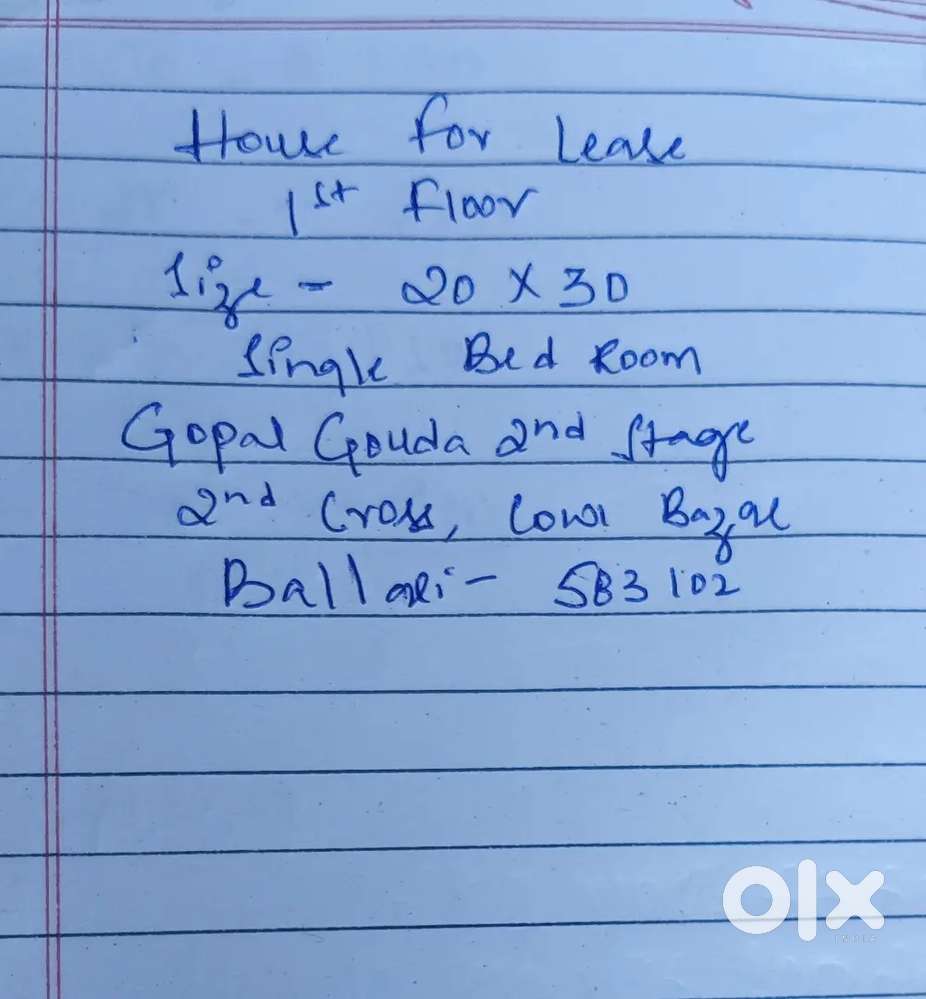 House For Lease
1st Floor
Size - 20 X 30
Single Bed Room
Gopal Gouda 2nd Stage
2nd Cross, Cowl Bazar
Ballari - 583102
OLX
INDIA